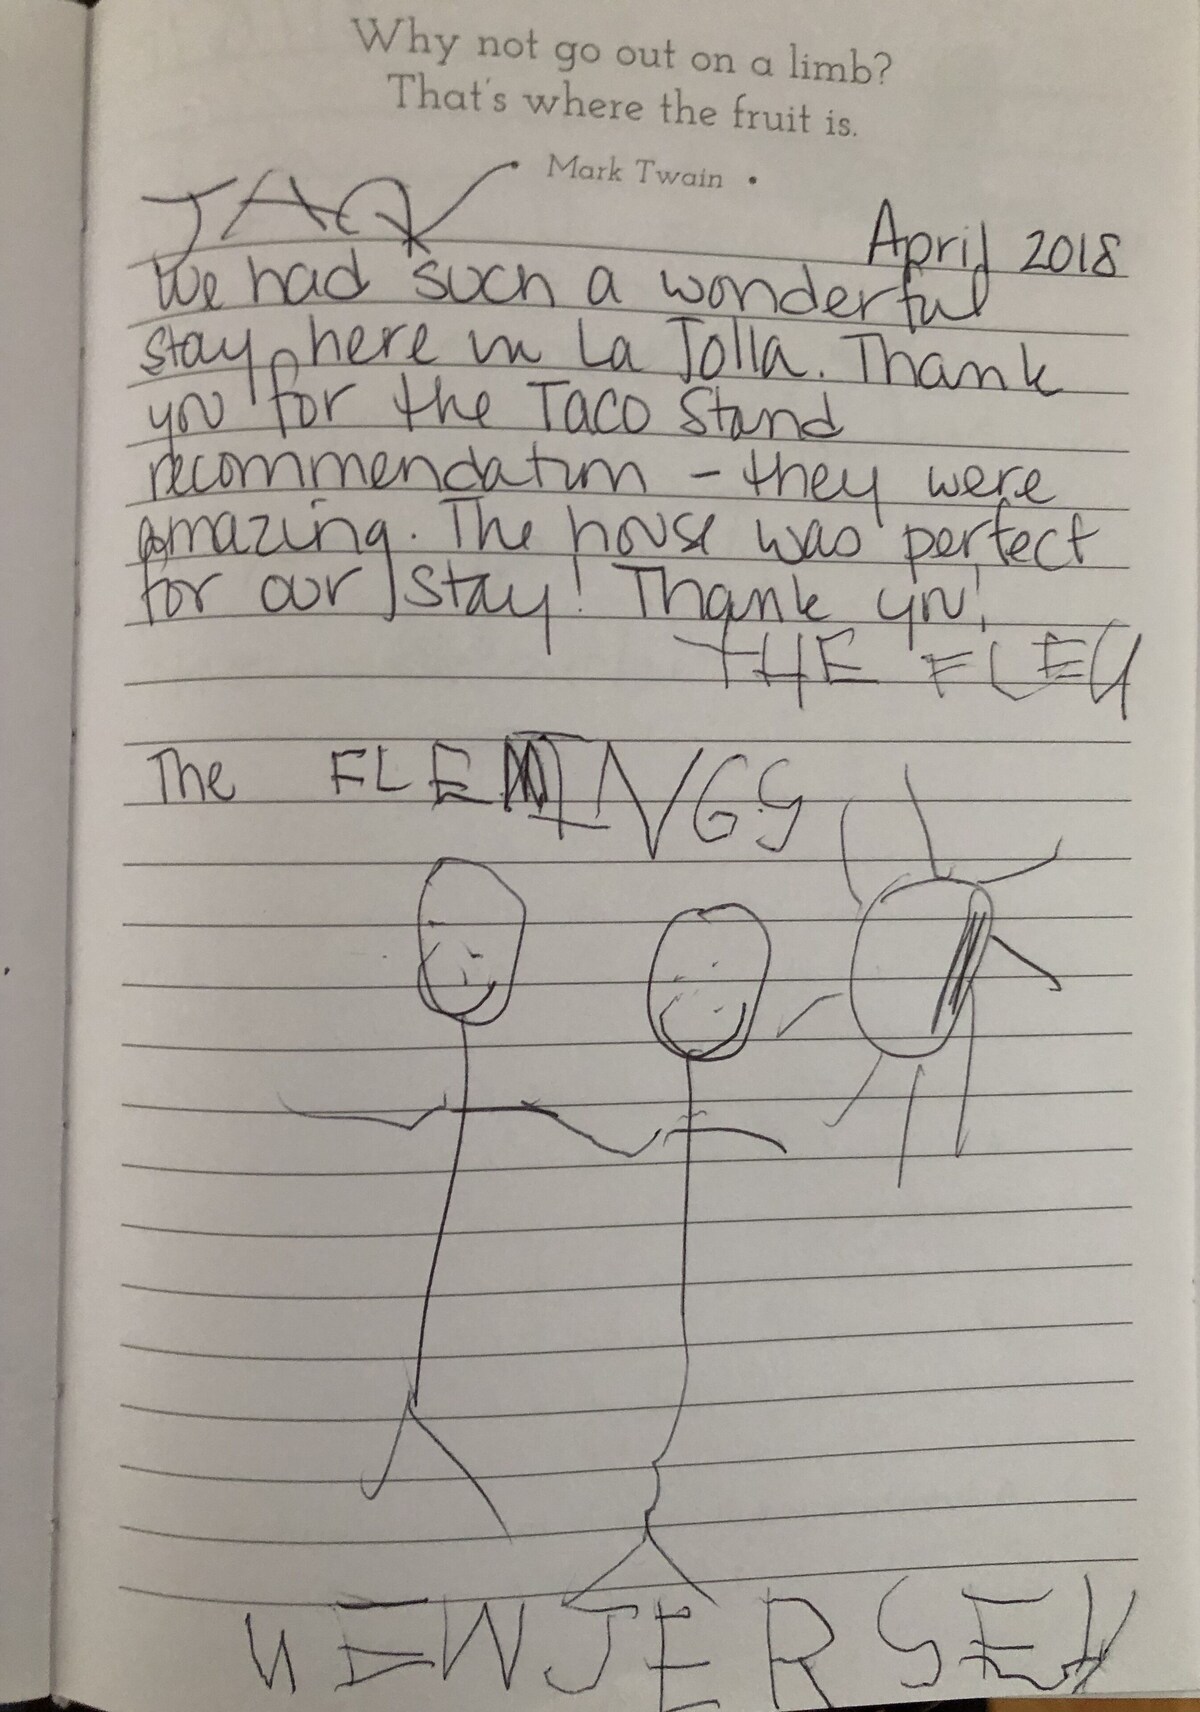 Why not go out on a limb?
That's where the fruit is.
• Mark Twain •
JAQ
April 2018
We had such a wonderful
stay here in La Jolla. Thank
you for the Taco Stand
recommendation - they were
amazing. The house was perfect
for our stay! Thank you!
THE FLE
The FLEMINGS
NEW JERSEY